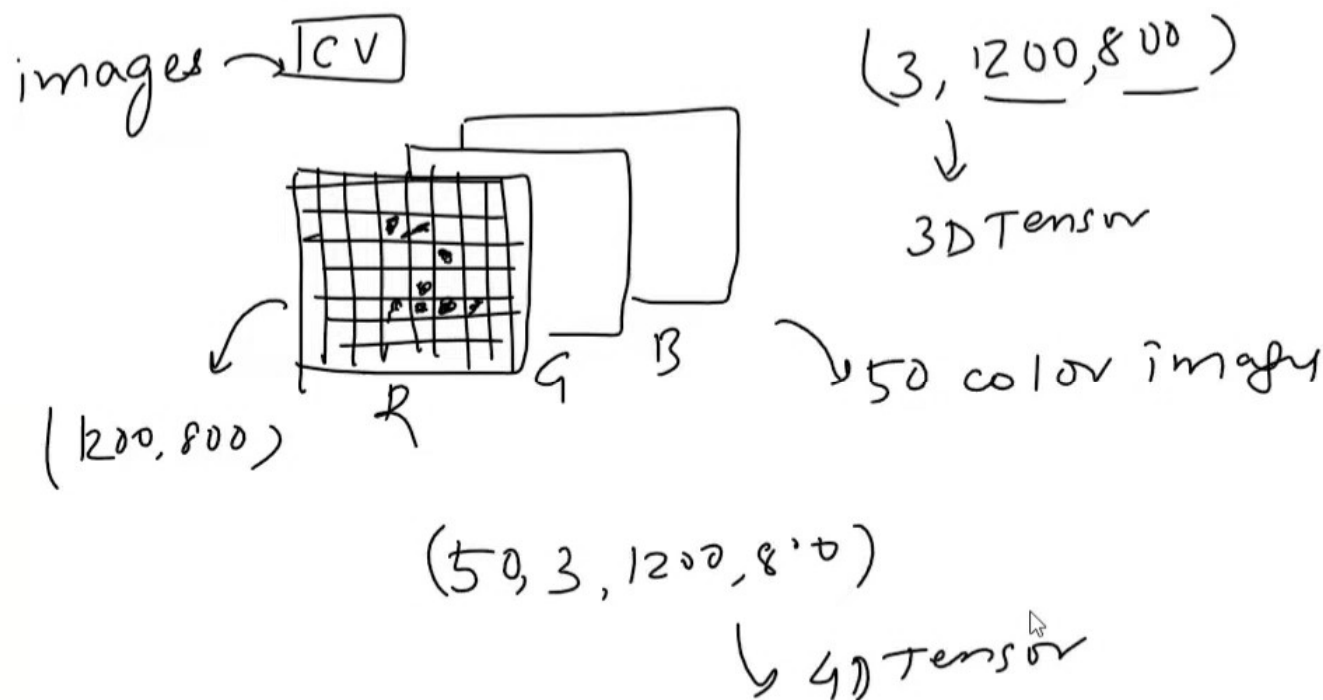 images
CV
(3, 1200, 800)
3D Tensor
R
G
B
50 color images
(1200, 800)
(50, 3, 1200, 800)
4D Tensor